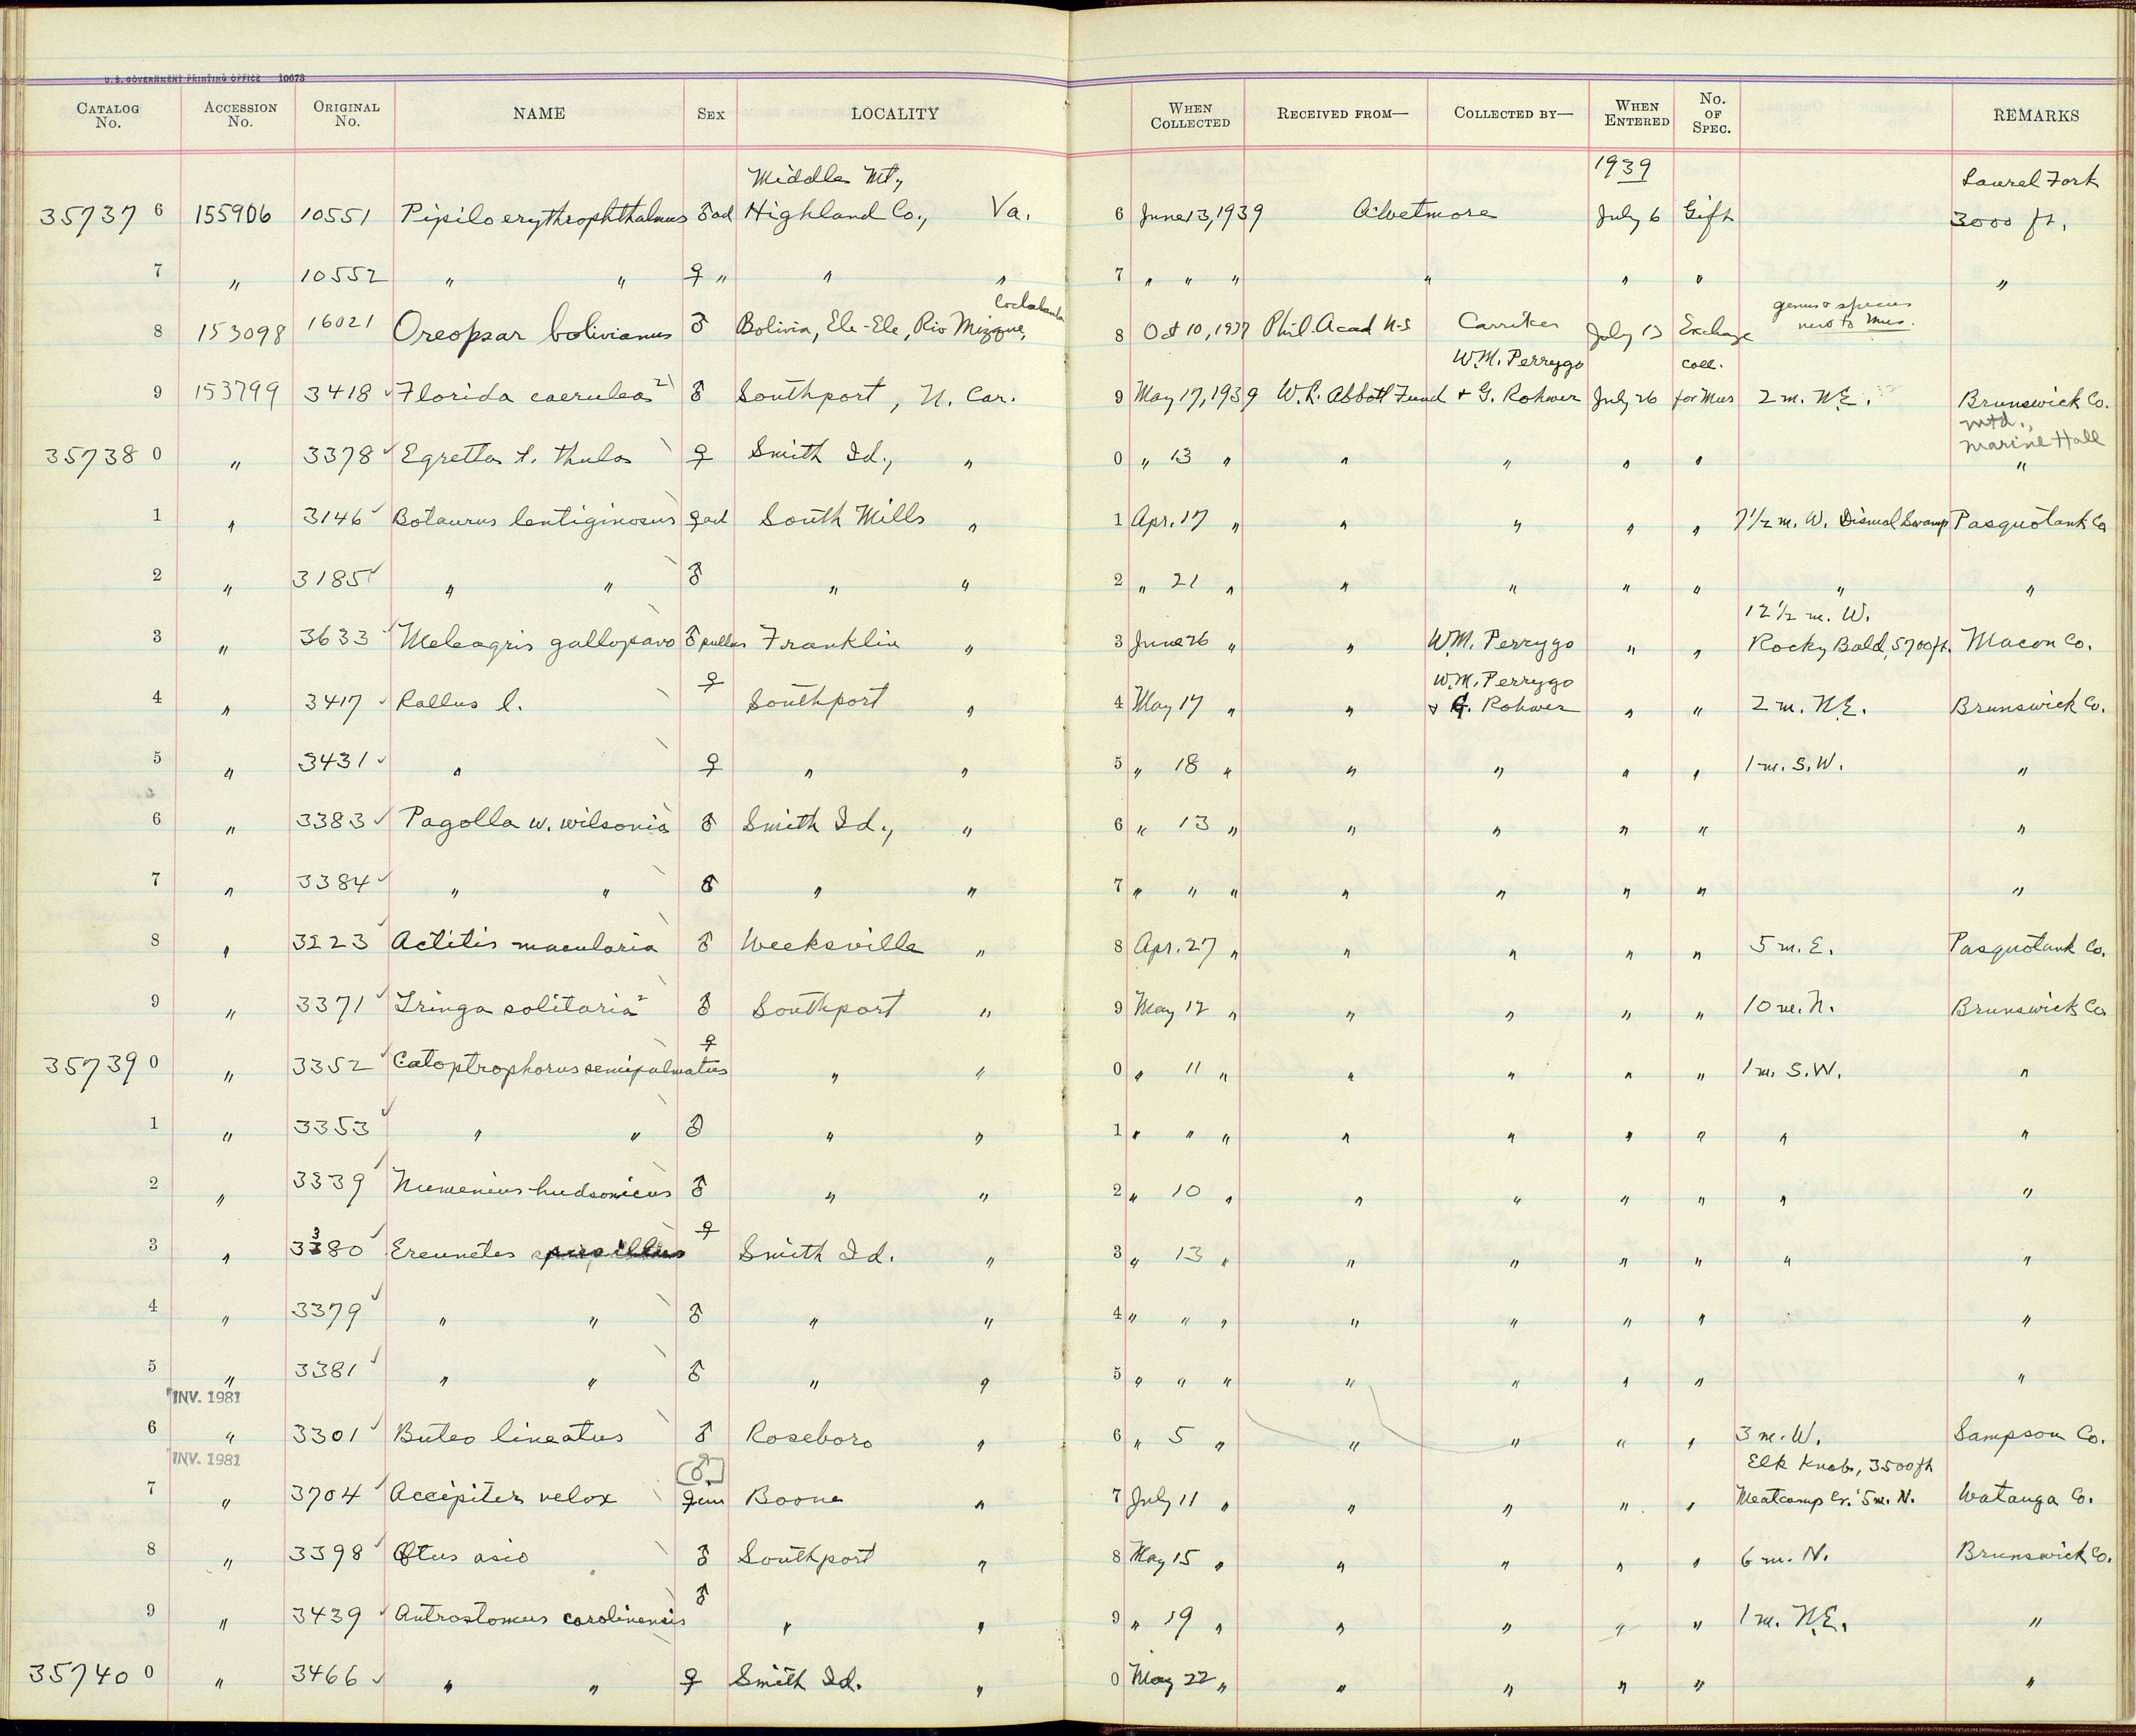 U. S. GOVERNMENT PRINTING OFFICE 10673
CATALOG No. ACCESSION No. ORIGINAL No. NAME SEX LOCALITY WHEN COLLECTED RECEIVED FROM— COLLECTED BY— WHEN ENTERED No. OF SPEC. REMARKS
Middle Mt., 1939 Laurel Fork
35737 6 155906 10551 Pipilo erythrophthalmus ♂ad Highland Co., Va. 6 June 13, 1939 A. Wetmore July 6 Gift 3000 ft.
7 " 10552 " " ♀ " " " 7 " " " " " " "
Cochabamba genus & species
8 153098 16021 Oreopsar bolivianus ♂ Bolivia, Ele-Ele, Rio Mizque, 8 Oct 10, 1937 Phil. Acad N-S Carriker July 13 Exchange new to Mus.
W.M. Perrygo coll.
9 153799 3418 ✓ Florida caerulea 2 ♂ Southport, N. Car. 9 May 17, 1939 W. L. Abbott Fund + G. Rohwer July 26 for Mus 2 m. N.E. Brunswick Co.
mtd.,
Marine Hall
35738 0 " 3378 ✓ Egretta t. thula ♀ Smith Id., " 0 " 13 " " " " " "
1 " 3146 ✓ Botaurus lentiginosus ♀ad South Mills " 1 Apr. 17 " " " " " 7 1/2 m. W. Dismal Swamp Pasquotank Co
2 " 3185 ✓ " " ♂ " " 2 " 21 " " " " " " "
12 1/2 m. W.
3 " 3633 ✓ Meleagris gallopavo ♂ pullus Franklin " 3 June 26 " " W.M. Perrygo " " Rocky Bald, 5700 ft. Macon Co.
W.M. Perrygo
4 " 3417 ✓ Rallus l. ♀ Southport " 4 May 17 " " + G. Rohwer " " 2 m. N.E. Brunswick Co.
5 " 3431 ✓ " ♀ " " 5 " 18 " " " " " 1 m. S.W. "
6 " 3383 ✓ Pagolla w. wilsonia ♂ Smith Id., " 6 " 13 " " " " " "
7 " 3384 ✓ " " ♂ " " 7 " " " " " " " "
8 " 3223 ✓ Actitis macularia ♂ Weeksville " 8 Apr. 27 " " " " " 5 m. E. Pasquotank Co.
9 " 3371 ✓ Tringa solitaria 2 ♂ Southport " 9 May 12 " " " " " 10 m. N. Brunswick Co
35739 0 " 3352 ✓ Catoptrophorus semipalmatus ♀ " " 0 " 11 " " " " " 1 m. S.W. "
1 " 3353 ✓ " " ♂ " " 1 " " " " " " " " "
2 " 3339 ✓ Numenius hudsonicus ♂ " " 2 " 10 " " " " " " "
3 " 3380 ✓ Ereunetes pusillus ♀ Smith Id. " 3 " 13 " " " " " " "
4 " 3379 ✓ " " ♂ " " 4 " " " " " " " "
5 " 3381 ✓ " " ♂ " " 5 " " " " " " " "
INV. 1981
6 " 3301 ✓ Buteo lineatus ♂ Roseboro " 6 " 5 " " " " " 3 m. W. Sampson Co.
INV. 1981 ♂ Elk Knob, 3500 ft
7 " 3704 ✓ Accipiter velox ♀ im Boone " 7 July 11 " " " " " Meatcamp Cr. 5 m. N. Watauga Co.
8 " 3398 ✓ Otus asio ♂ Southport " 8 May 15 " " " " " 6 m. N. Brunswick Co.
9 " 3439 ✓ Antrostomus carolinensis ♂ " " 9 " 19 " " " " " 1 m. N.E. "
35740 0 " 3466 ✓ " " ♀ Smith Id. " 0 May 22 " " " " " "